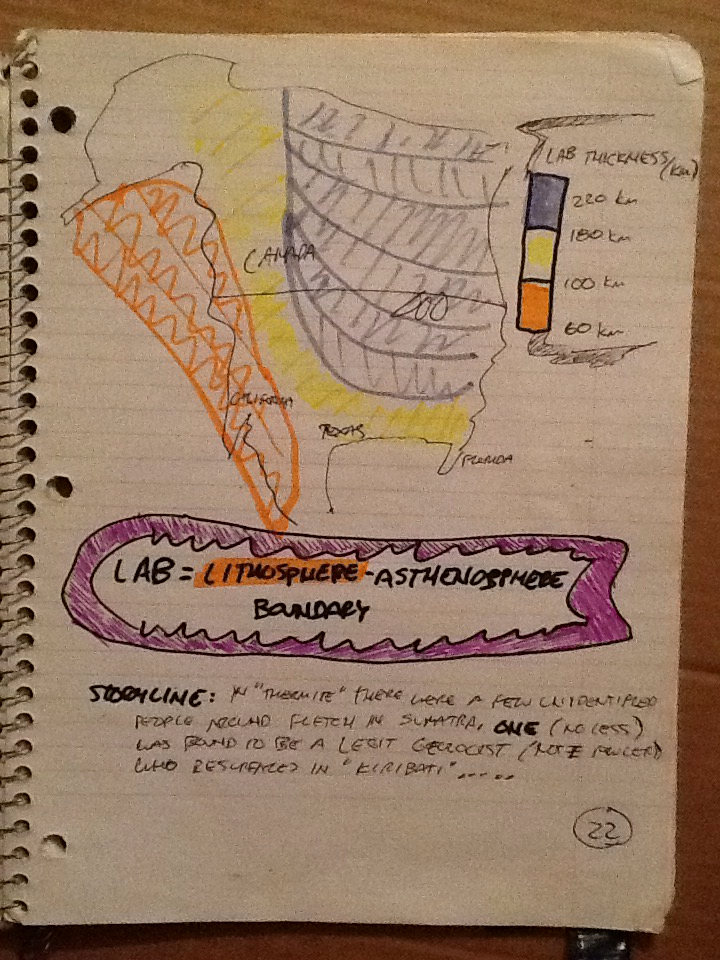 LAB THICKNESS (km)
220 km
180 km
100 km
60 km
CANADA
200
CALIFORNIA
TEXAS
FLORIDA
LAB = LITHOSPHERE-ASTHENOSPHERE
BOUNDARY
STORYLINE: IN "THERMITE" THERE WERE A FEW UNIDENTIFIED
PEOPLE AROUND FLETCH IN SUMATRA, ONE (NO LESS)
WAS BOUND TO BE A LEGIT GEOLOGIST (NOT
WHO RESURFACED IN "KIRIBATI".....
22